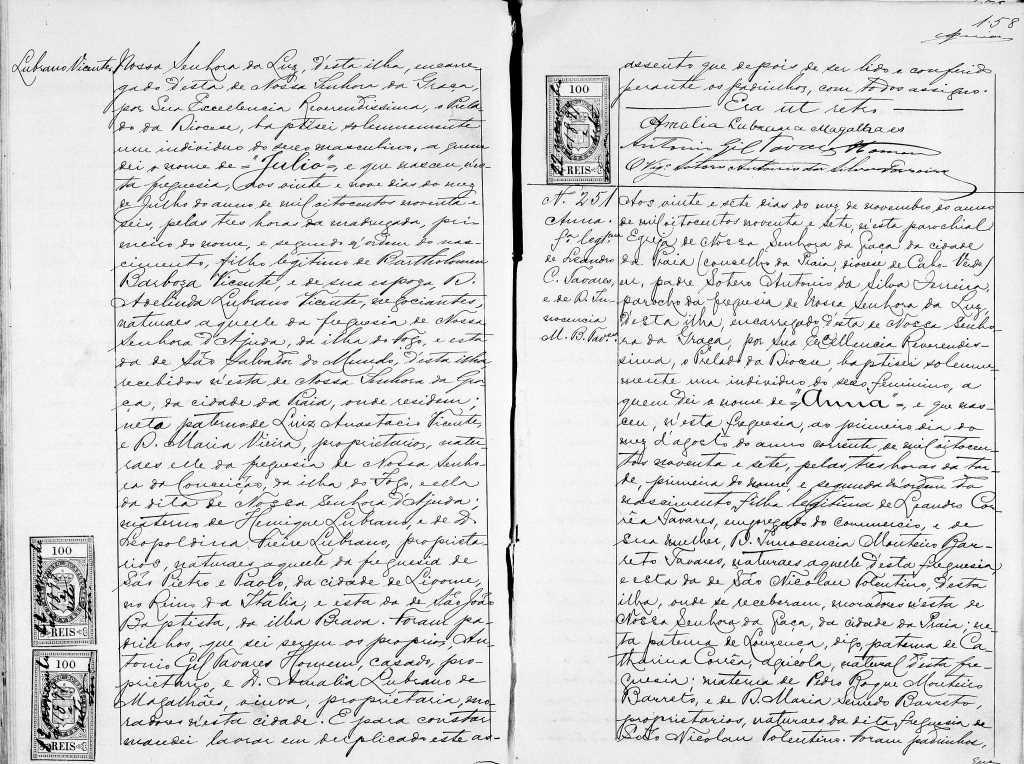 Lubrano Vicente,
Nossa Senhora da Luz, d'esta ilha, encarre-
gado d'esta de Nossa Senhora da Graça,
por Sua Excellencia Reverendissima, o Prela-
do da Diocese, baptisei solemnemente
um individuo do sexo masculino, a quem
dei o nome de "Julio", e que nasceu, n'esta
freguesia, aos vinte e nove dias do mez
de Junho do anno de mil oitocentos noventa e
seis, pelas tres horas da madrugada, pri-
meiro do nome, e segundo n'ordem do nas-
cimento, filho legitimo de Bartholomeu
Barboza Vicente, e de sua esposa, D.
Adelinda Lubrano Vicente, negociantes,
naturaes aquelle da freguesia de Nossa
Senhora d'Ajuda, da ilha do Fogo, e esta
da de São Salvador do Mundo, d'esta ilha
recebidos n'esta de Nossa Senhora da Gra-
ça, da cidade da Praia, onde residem;
neto paterno de Luiz Anastacio Vicente,
e D. Maria Vieira, proprietarios, natu-
raes elle da freguesia de Nossa Senho-
ra da Conceição, da ilha do Fogo, e ella
da dita de Nossa Senhora d'Ajuda;
materno de Henrique Lubrano, e de D.
Leopoldina Lubrano, proprieta-
rios, naturaes aquelle da freguesia de
São Pietro e Paolo, da cidade de
no Reino da Italia, e esta da de São João
Baptista, da ilha Brava. Foram pa-
drinhos, que sei serem os proprios, An-
tonio Gil Tavares Homem, casado, pro-
prietario, e D. Amalia Lubrano de
Magalhães, viuva, proprietaria, mo-
radores n'esta cidade. E para constar
mandei lavrar em duplicado este as-
100
REIS
100
REIS
158
assento que depois de ser lido e conferido
perante os padrinhos, com todos assigno.
Era ut retro
Amalia Lubrano de Magalhães
Antonio Gil Tavares Homem
O Vigº Sotero Antonio da Silva Ferreira
100
REIS
N. 251
Anna
fª legtma
de Lisandro
C. Tavares,
e de D. In-
nocencia
M. B. Tavres
Aos vinte e sete dias do mez de novembro do anno
de mil oitocentos noventa e sete, n'esta parochial
Egreja de Nossa Senhora da Graça da cidade
da Praia (conselho da Praia, diocese de Cabo Verde)
eu, padre Sotero Antonio da Silva Ferreira,
parocho da freguesia de Nossa Senhora da Luz,
d'esta ilha, encarregado d'esta de Nossa Senho-
ra da Graça, por Sua Excellencia Reverendis-
sima, o Prelado da Diocese, baptisei solemne-
mente um individuo do sexo feminino, a
quem dei o nome de "Anna", e que nas-
ceu, n'esta freguesia, ao primeiro dia do
mez d'agosto do anno corrente, de mil oitocen-
tos noventa e sete, pelas tres horas da tar-
de, primeira do nome, e segunda n'ordem do
nascimento, filha legitima de Leandro Cor-
rêa Tavares, empregado do commercio, e de
sua mulher, D. Innocencia Monteiro Bar-
reto Tavares, naturaes aquelle d'esta freguesia
e esta da de São Nicolau Tolentino, d'esta
ilha, onde se receberam, moradores n'esta de
Nossa Senhora da Graça, da cidade da Praia; ne-
ta paterna de Lourença, digo, paterna de Ca-
tharina Corrêa, agricola, natural d'esta fre-
guesia; materna de Pedro Roque Monteiro
Barreto, e de D. Maria Semedo Barreto,
proprietarios, naturaes da dita freguesia de
São Nicolau Tolentino. Foram padrinhos,